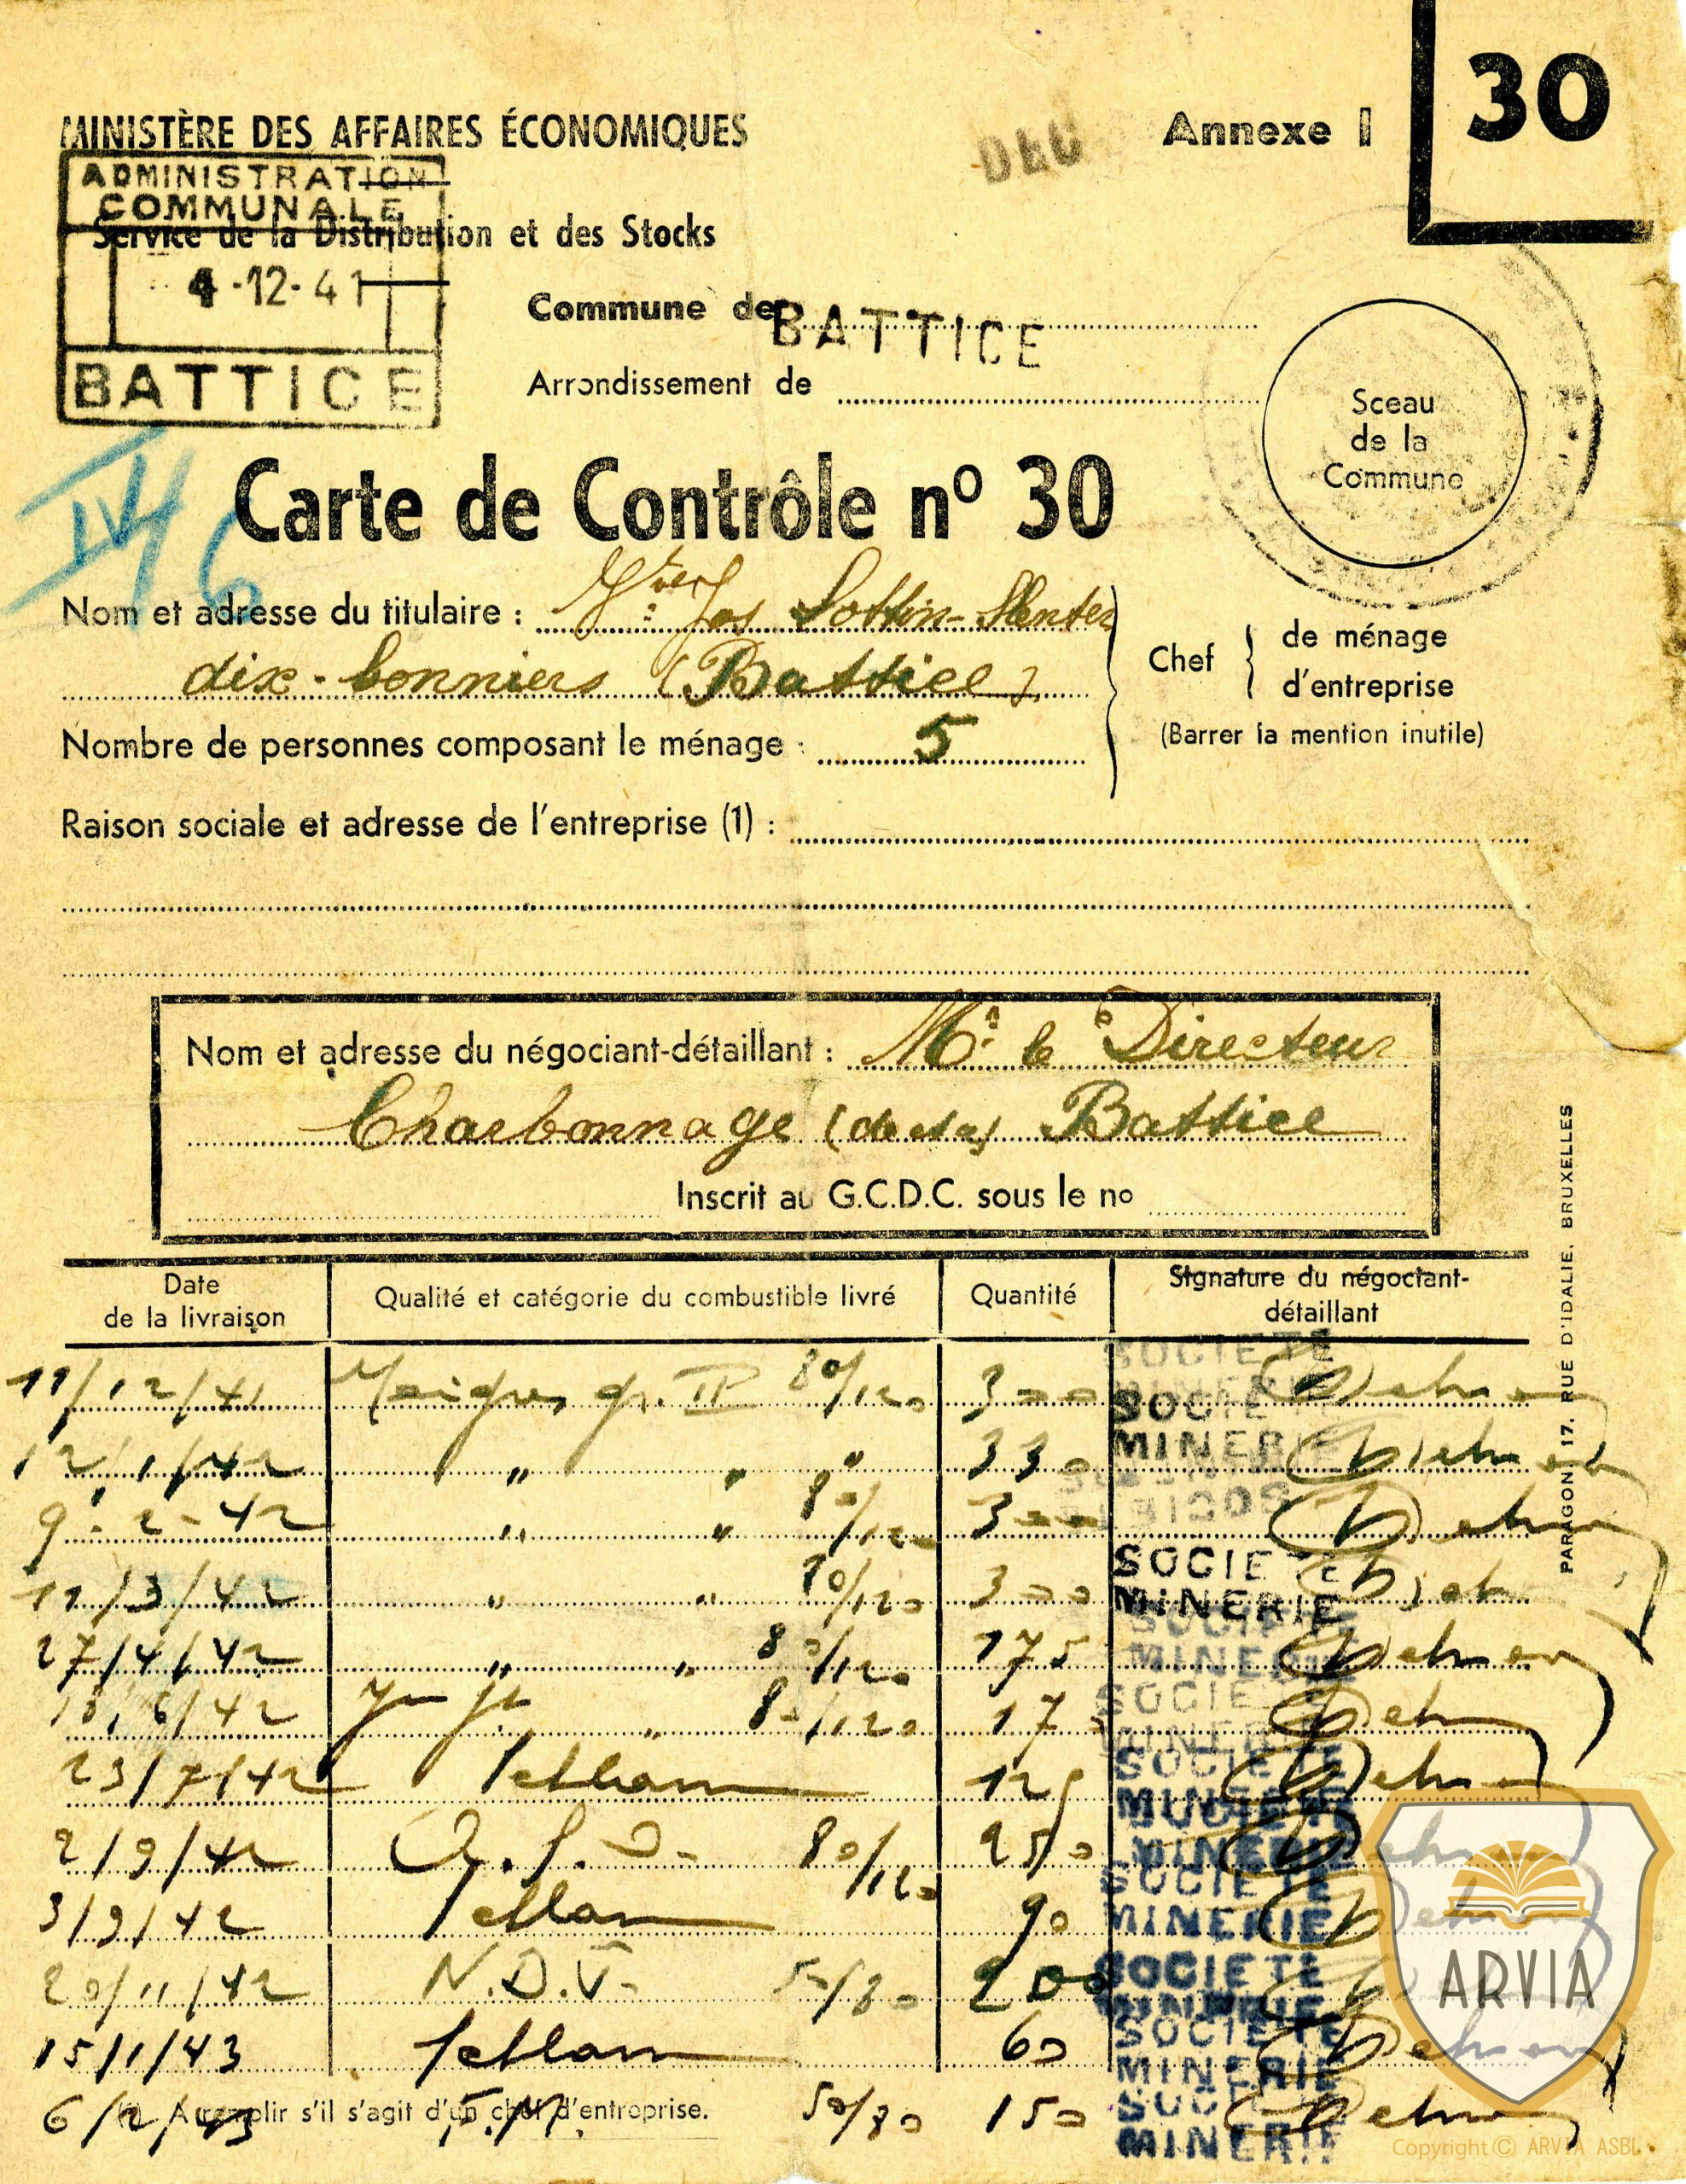 30
Annexe I
DEC
MINISTÈRE DES AFFAIRES ÉCONOMIQUES
ADMINISTRATION
COMMUNALE
Service de la Distribution et des Stocks
4-12-41
BATTICE
Commune de BATTICE
Arrondissement de
Sceau
de la
Commune
Carte de Contrôle nº 30
Nom et adresse du titulaire : Jos Lottin-
dix-bonniers (Battice)
Chef { de ménage
d'entreprise
(Barrer la mention inutile)
Nombre de personnes composant le ménage : 5
Raison sociale et adresse de l'entreprise (1) :
Nom et adresse du négociant-détaillant : Mr le Directeur
Charbonnage Battice
Inscrit au G.C.D.C. sous le no
Date de la livraison | Qualité et catégorie du combustible livré | Quantité | Signature du négociant-détaillant
11/12/41 Maigres gr. II 80/120 300 SOCIETE
12/1/42 " " " 330 SOCIETE MINERIE
9-2-42 " " 80/120 300
11/3/42 " " 80/120 300 SOCIETE MINERIE
27/4/42 " " 80/120 175 SOCIETE MINERIE
18/6/42 " 80/120 17 SOCIETE MINERIE
23/7/42 Schlamm 125 SOCIETE MINERIE
2/9/42 80/120 250 SOCIETE MINERIE
3/9/42 Schlamm 90 SOCIETE MINERIE
20/11/42 N.D.V. 50/80 200 SOCIETE MINERIE
15/1/43 Schlamm 60 SOCIETE MINERIE
6/2/43 50/80 150 SOCIETE MINERIE
(1) A remplir s'il s'agit d'un chef d'entreprise.
PARAGON 17, RUE D'IDALIE, BRUXELLES
ARVIA
Copyright © ARVIA ASBL